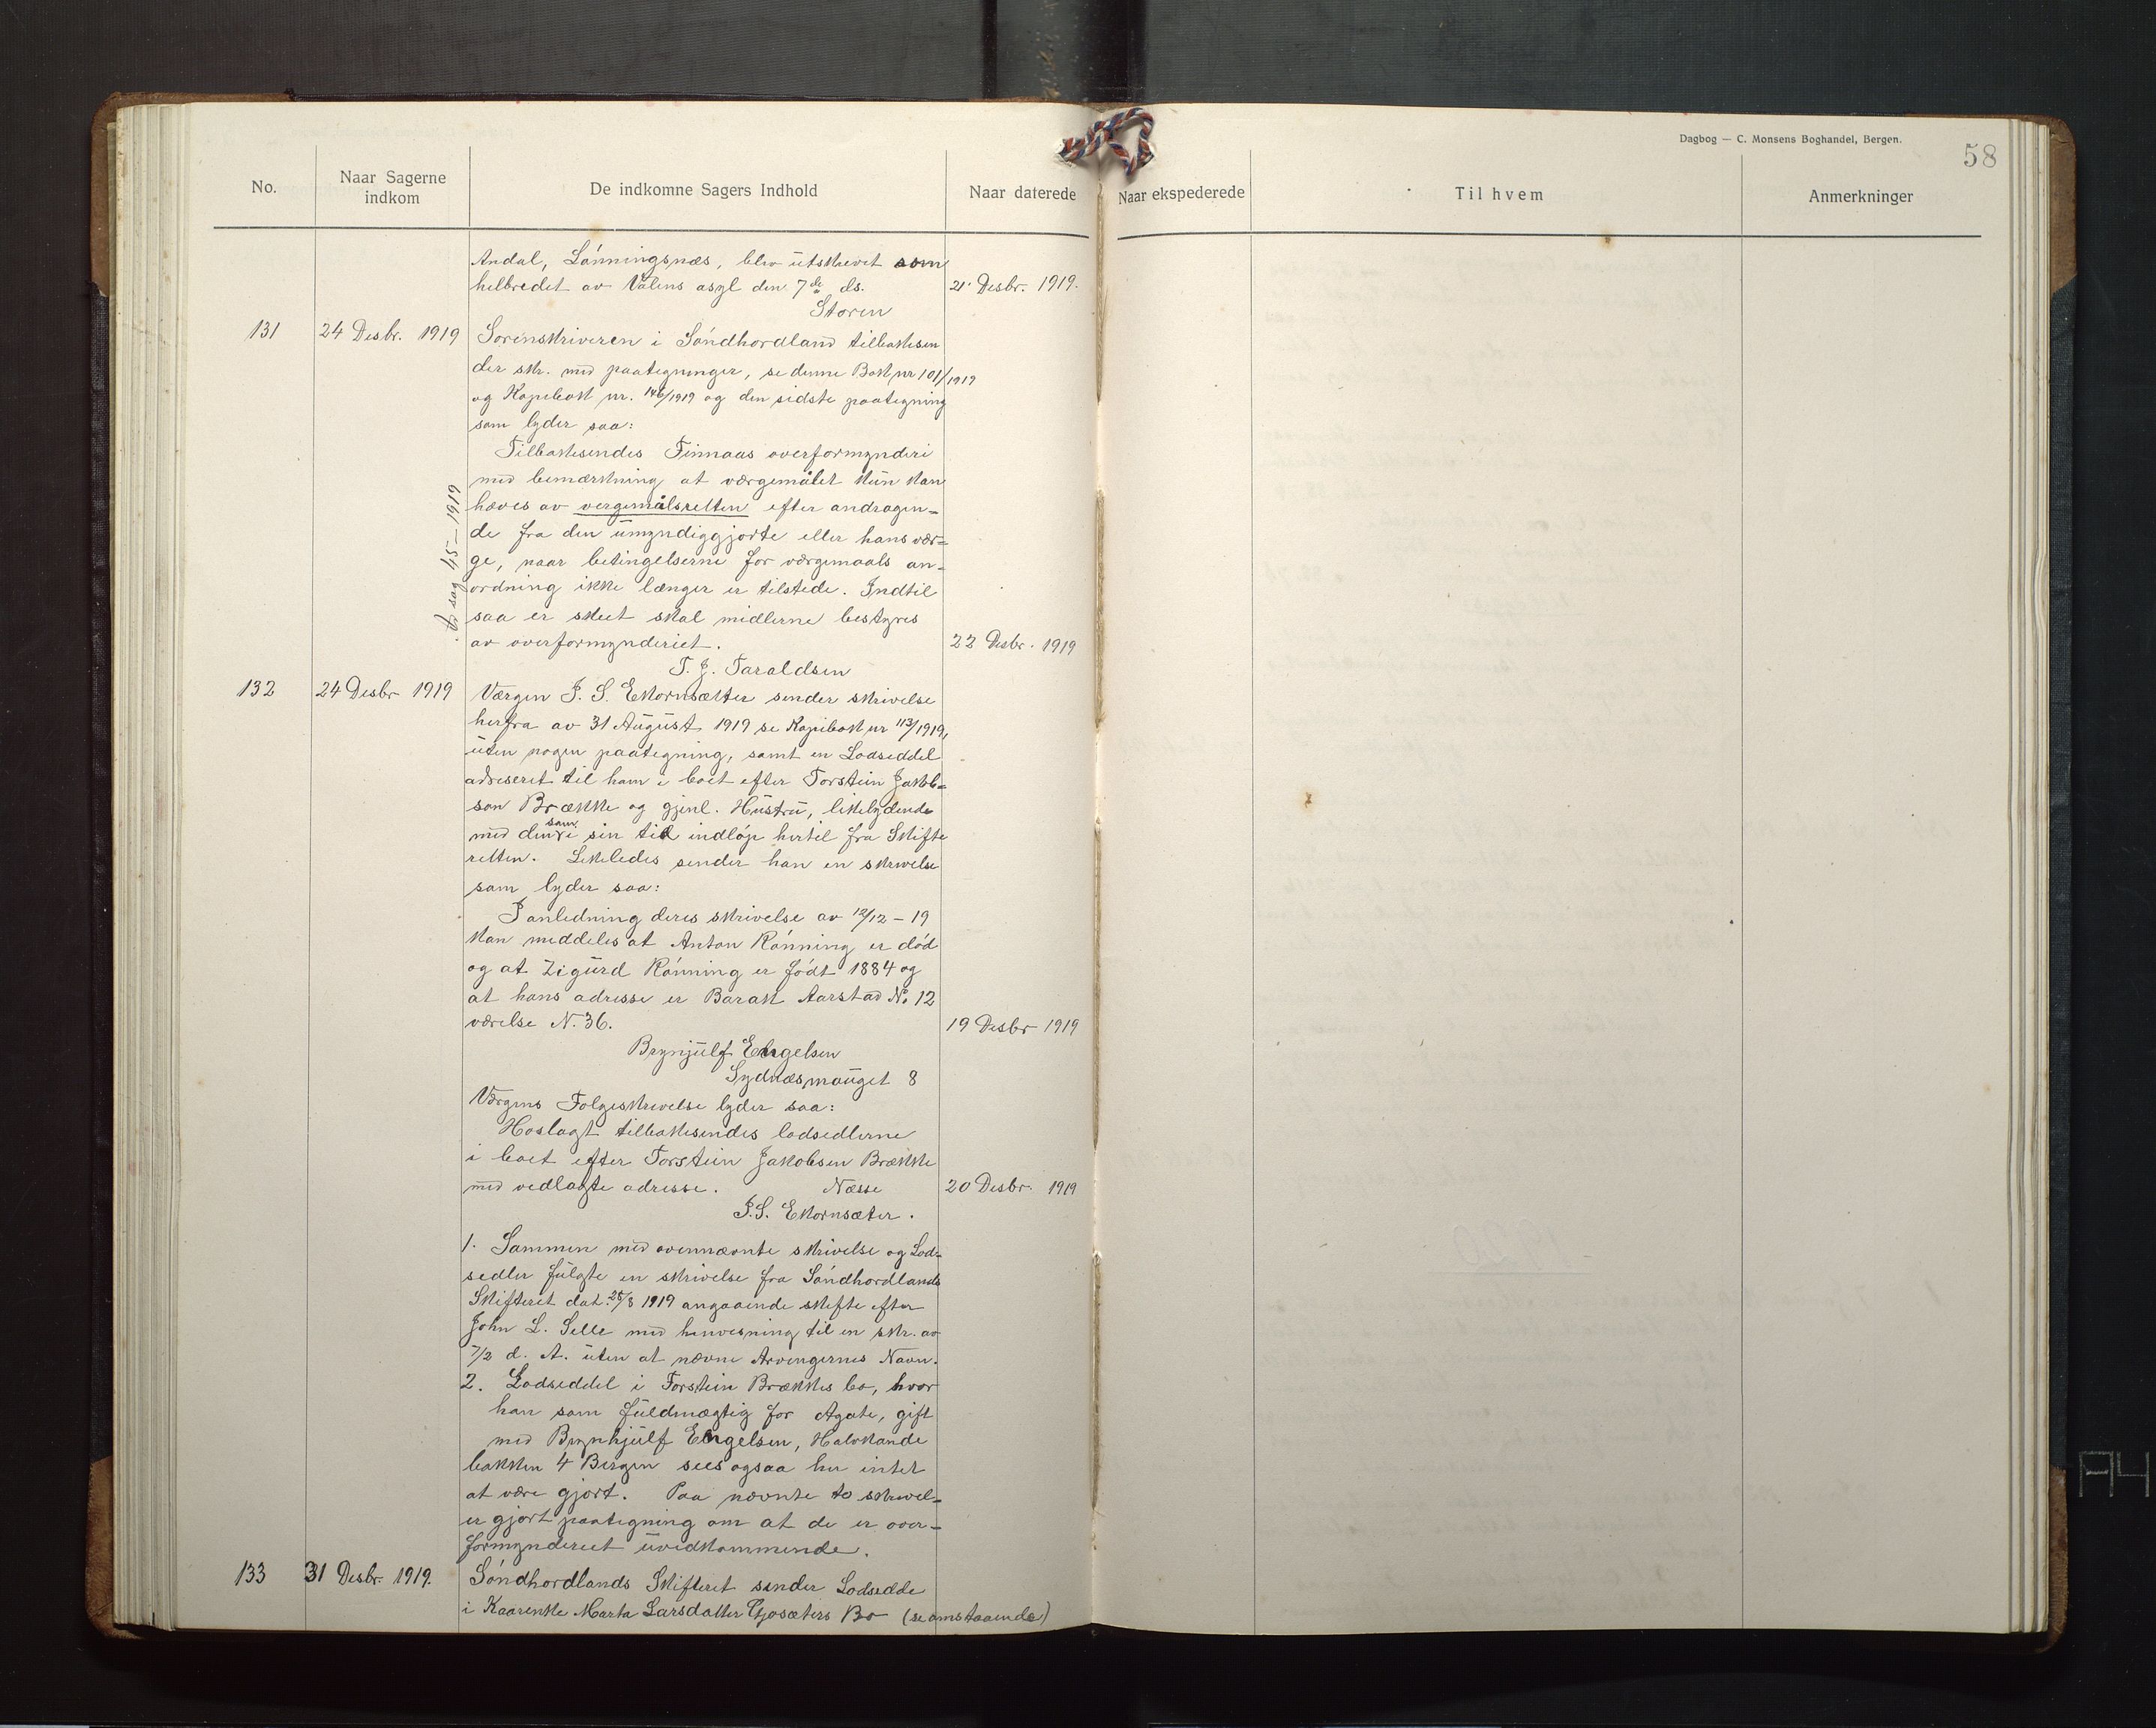 Dagbog — C. Monsens Boghandel, Bergen.
58
No.
Naar Sagerne indkom
De indkomne Sagers Indhold
Naar daterede
Naar ekspederede
Til hvem
Anmerkninger
Andal, Lønningsnæs, blev utskrevet som
helbredet av Valens asyl den 7de ds. 21 Desbr. 1919.
Storen
131 24 Desbr. 1919 Sorenskriveren i Søndhordland tilbakesen
der skr. med paategninger, se denne Bok nr 101/1919
og Kopibok nr. 146/1919 og den sidste paategning
som lyder saa:
Tilbakesendes Finnaas overformynderi
med bemærkning at værgemålet kun kan
hæves av vergemålsretten efter andragen=
de fra den umyndiggjorte eller hans vær=
ge, naar betingelserne for værgemaals an=
ordning ikke længer er tilstede. Indtil
saa er skeet skal midlerne bestyres
av overformynderiet. 22 Desbr. 1919
sag 45–1919
T. J. Taraldsen
132 24 Desbr 1919 Værgen J. S. Ekornsætter sender skrivelse
herfra av 31 August 1919 se Kopibok nr 113/1919,
uten nogen paategning, samt en Lodseddel
adreseret til ham i boet efter Torstein Jakob=
son Brække og gjenl. Hustru, likelydende
med den som i sin tid indløp hertil fra Skifte
retten. Likeledes sender han en skrivelse
som lyder saa:
I anledning deres skrivelse av 12/12 – 19
kan meddeles at Anton Rønning er død
og at Zigurd Rønning er født 1884 og
at hans adresse er Barak Aarstad No 12
værelse N. 36. 19 Desbr 1919
Brynjulf Engelsen
Sydnæsmauget 8
Værgens Følgeskrivelse lyder saa:
Hoslagt tilbakesendes lodsedlerne
i boet efter Torstein Jakobsen Brække
med vedlagte adresse. Næsse 20 Desbr. 1919
J. S. Ekornsæter.
1. Sammen med ovennævnte skrivelse og Lod=
sedler fulgte en skrivelse fra Søndhordlands
Skifteret dat. 25/8 1919 angaaende skifte efter
John L. Selle med henvisning til en skr. av
7/2 d. A. uten at nævne Arvingernes Navn.
2. Lodseddel i Torstein Brækkes bo, hvor
han som fuldmægtig for Agate, gift
med Brynhjulf Engelsen, Halvkande
bakken 4 Bergen sees ogsaa her intet
at være gjort. Paa nævnte to skrivel=
er gjort paategning om at de er over=
formynderiet uvedkommende.
133 31 Desbr. 1919. Søndhordlands Skifteret sender Lodsedde
i Kaarenke Marta Larsdatter Gjosæters Bo (se omstaaende)